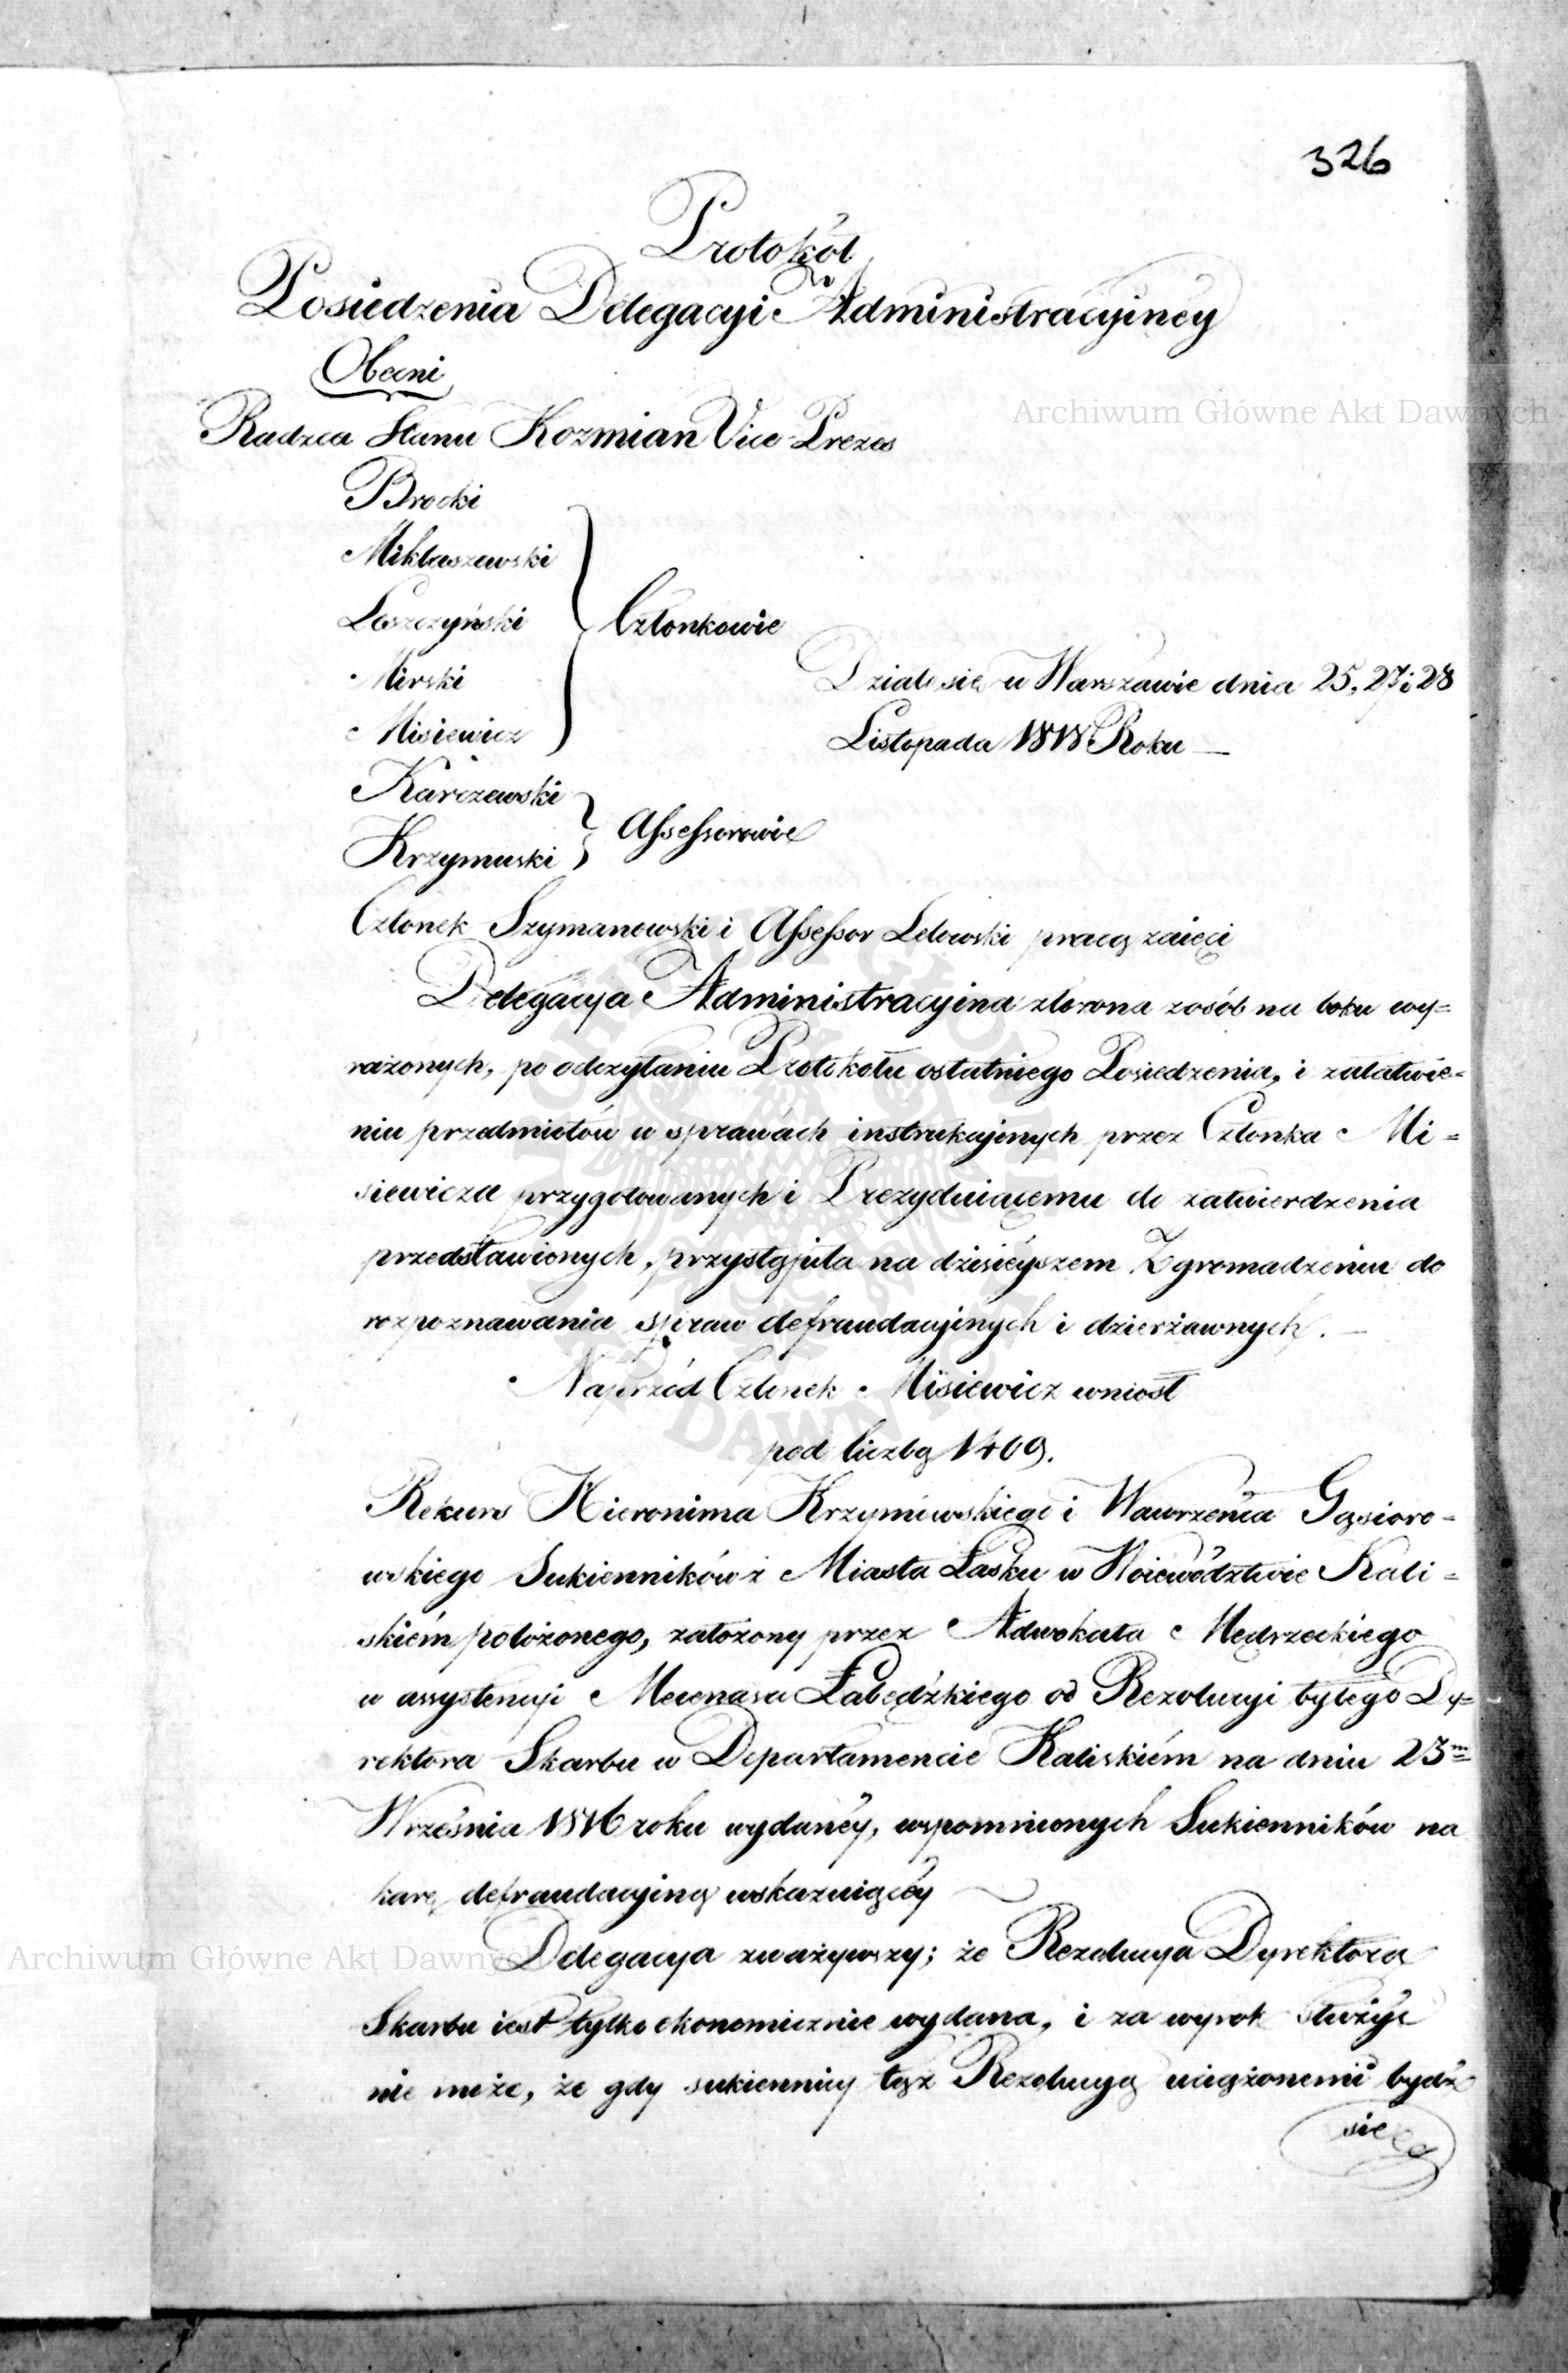 326
Protokół
Posiedzenia Delegacyi Administracyiney
Obecni
Radzca Stanu Kozmian Vice-Prezes
Brocki
Mikłaszewski
Leszczyński
Członkowie
Mirski
Działo się w Warszawie dnia 25, 27 i 28
Misiewicz
Listopada 1818 Roku
Karczewski
Assessorowie
Krzymuski
Członek Szymanowski i Assessor Lelowski pracą zaięci
Delegacya Administracyina złożona z osób na boku wy=
rażonych, po odczytaniu Protokołu ostatniego Posiedzenia, i załatwie=
niu przedmiotów w sprawach instrukcyinych przez Członka Mi=
siewicza przygotowanych i Prezyduiącemu do zatwierdzenia
przedstawionych, przystąpiła na dzisiéyszem Zgromadzeniu do
rozpoznawania spraw defraudacyinych i dzierżawnych.
Naprzód Członek Misiewicz wniosł
pod liczbą 1469.
Rekurs Hieronima Krzymowskiego i Wawrzeńca Gąsioro=
wskiego Sukienników z Miasta Łasku w Woiewództwie Kali=
skiém położonego, założony przez Adwokata Mędrzeckiego
w assystencyi Mecenasa Łabędźkiego od Rezolucyi byłego Dy=
rektora Skarbu w Departamencie Kaliskiém na dniu 23m
Września 1816 roku wydanéy, wspomnionych Sukienników na
karę defraudacyiną wskazuiącéy
Delegacya zważywszy; że Rezolucya Dyrektora
Skarbu iest tylko ekonomicznie wydana, i za wyrok służyć
nie może, że gdy sukiennicy tęż Rezolucyą uciążonemi bydź
się
Archiwum Główne Akt Dawnych
Archiwum Główne Akt Dawnych